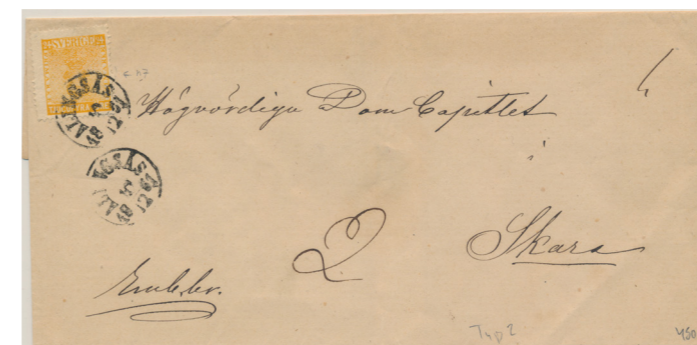 SVERIGE
ALINGSÅS
5
12
ALINGSÅS
5
12
Högvördiga Dom Capitlet
i
2
Skara
Embbr.
Typ 2
450